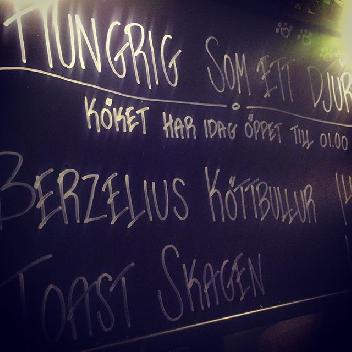 HUNGRIG SOM ETT DJUR
KÖKET HAR IDAG ÖPPET TILL 01.00
BERZELIUS KÖTTBULLUR
TOAST SKAGEN